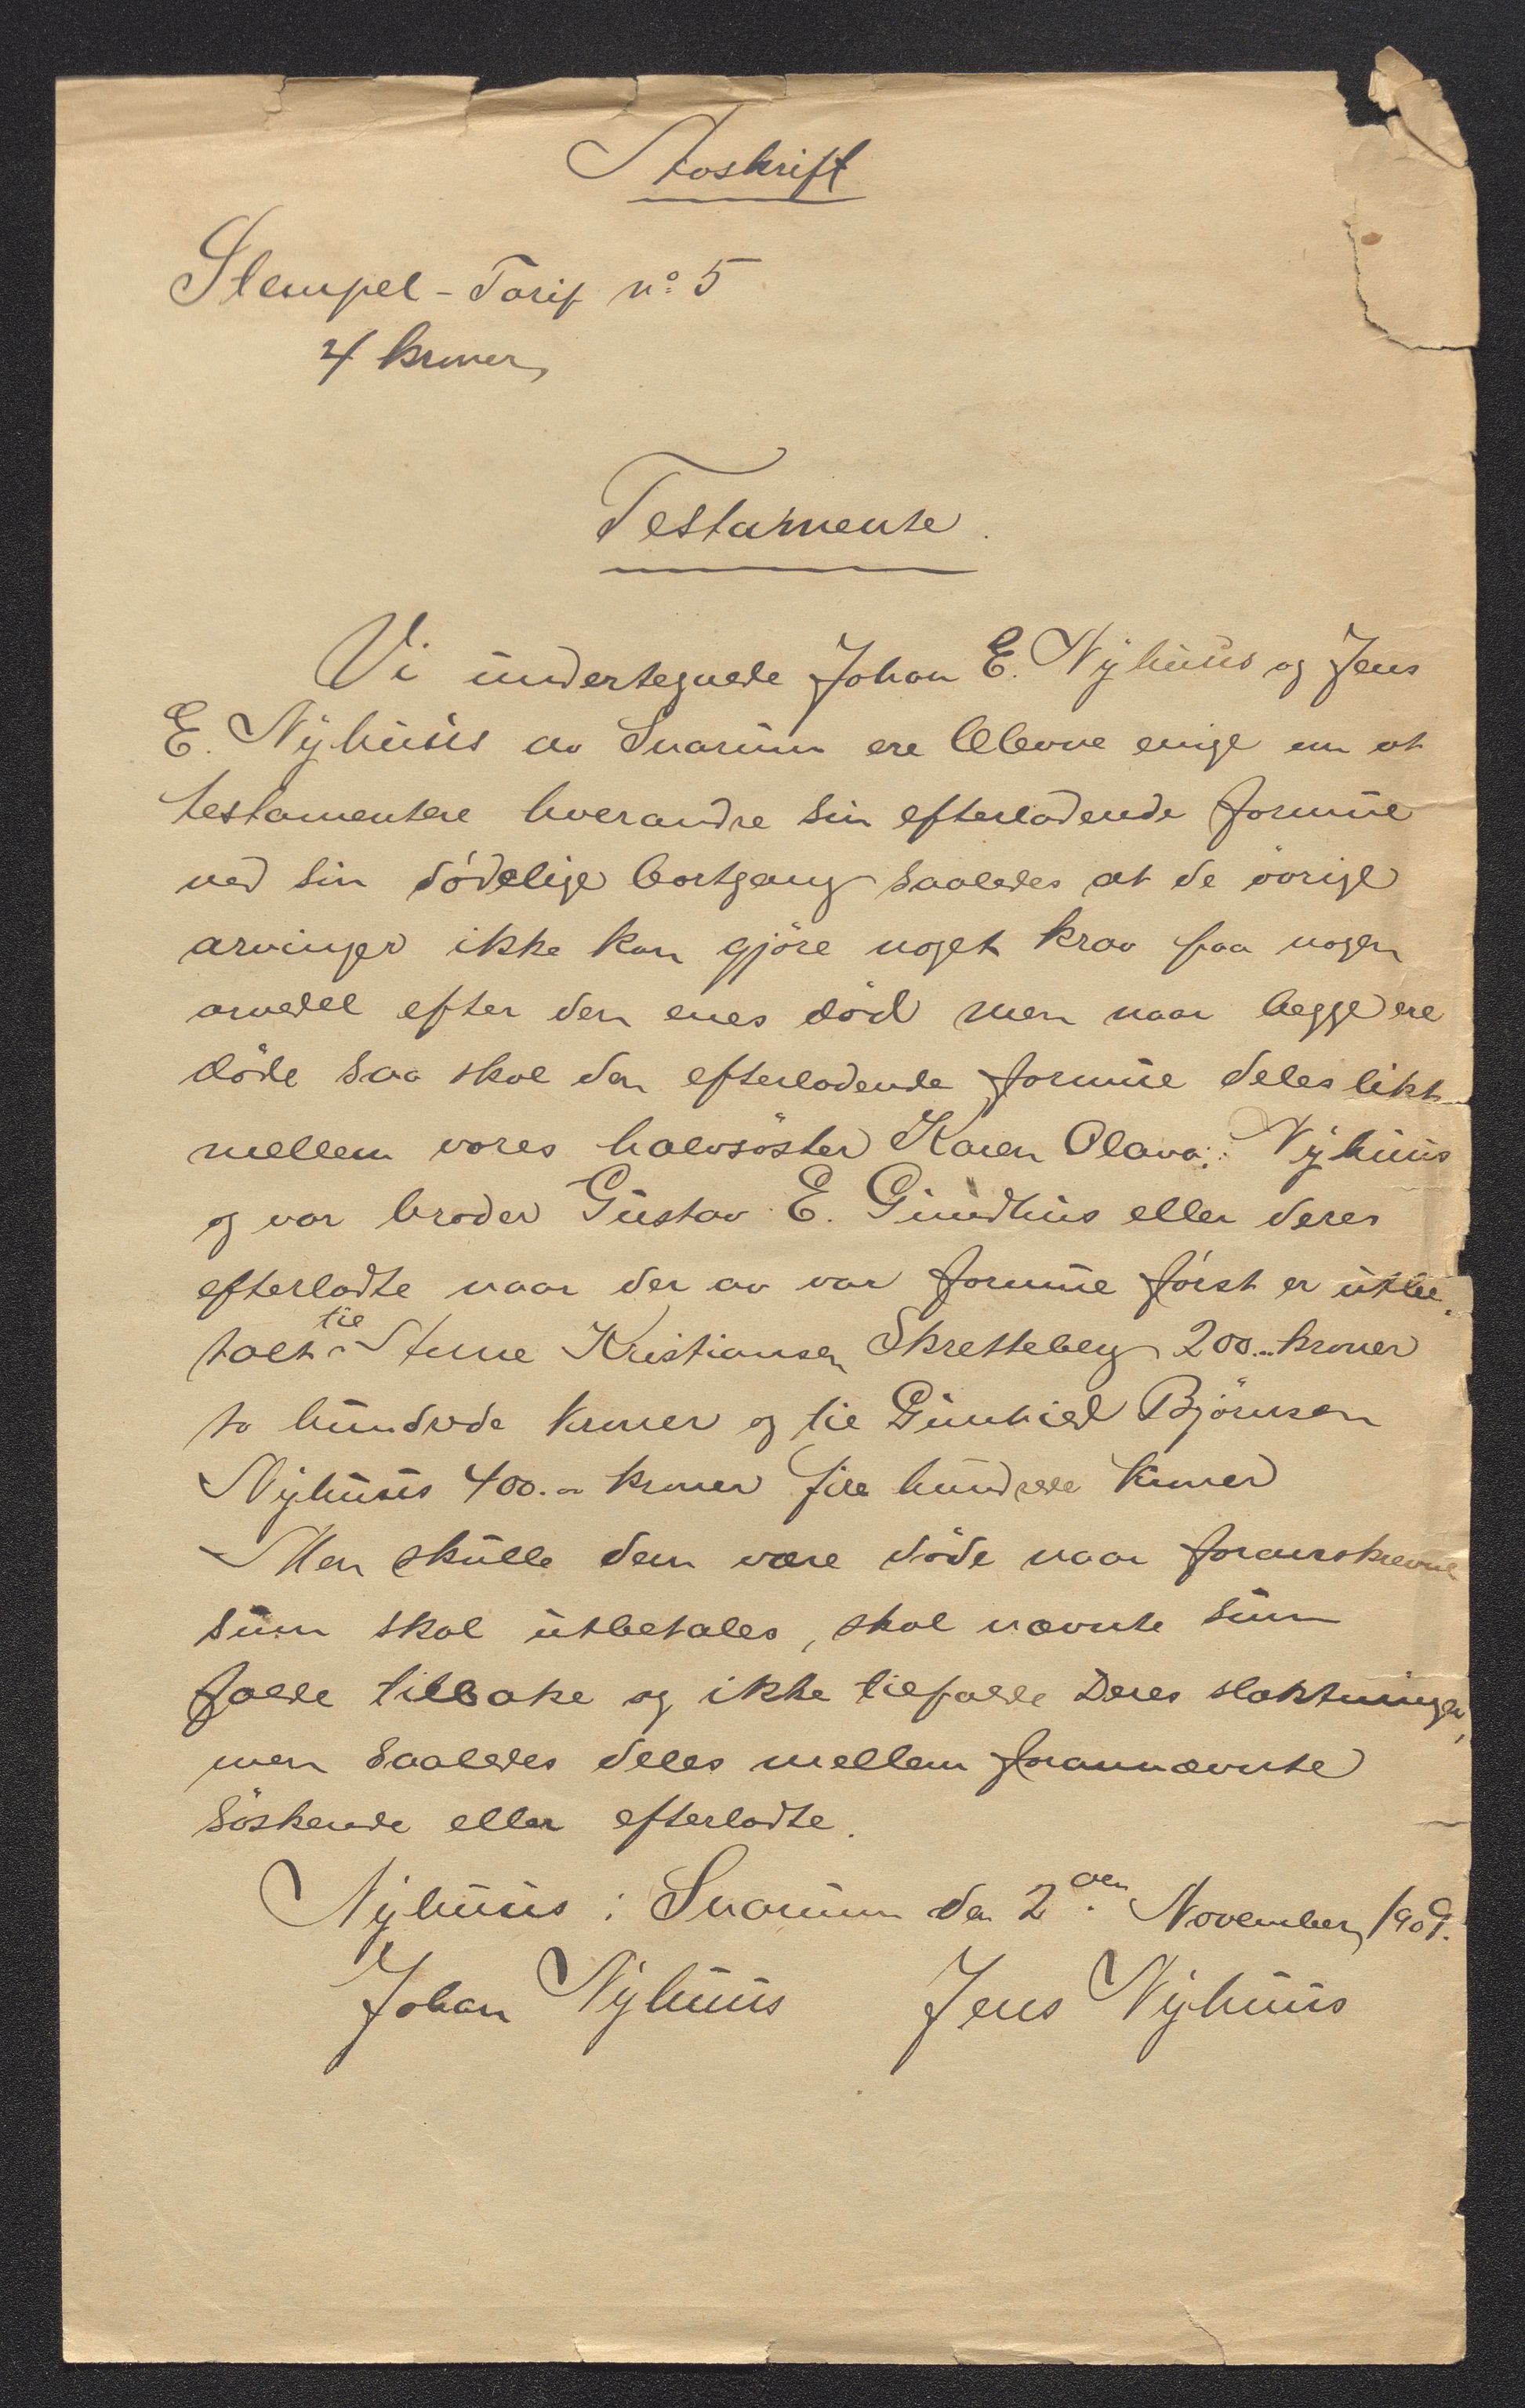 Avskrift
Stempel-Tarif no: 5
4 kroner
Testamente.
Vi undertegnede Johan E. Nyhuus og Jens
E. Nyhuus av Snarum ere blevne enige om at
testamentere hverandre sin efterladende formue
ved sin dødelige bortgang saaledes at de övrige
arvinger ikke kan gjöre noget krav paa nogen
arvedel efter den enes död men naar begge ere
döde saa skal den efterladende formue deles likt
mellem vores halvsöster Karen Olava Nyhuus
og vor broder Gustav E. Gundhus eller deres
efterladte naar der av vor formue först er utbe-
talt til Stene Kristiansen Skretteberg 200.- kroner
to hundrede kroner og til Gunhild Björnsen
Nyhuus 400.- kroner fire hundrede kroner
Men skulle dem være döde naar foranskrevne
sum skal utbetales, skal nævnte sum
falde tilbake og ikke tilfalde Deres slektninger,
men saaledes deles mellem forannævnte
söskende eller efterladte.
Nyhuus i Snarum den 2den November 1909.
Johan Nyhuus Jens Nyhuus